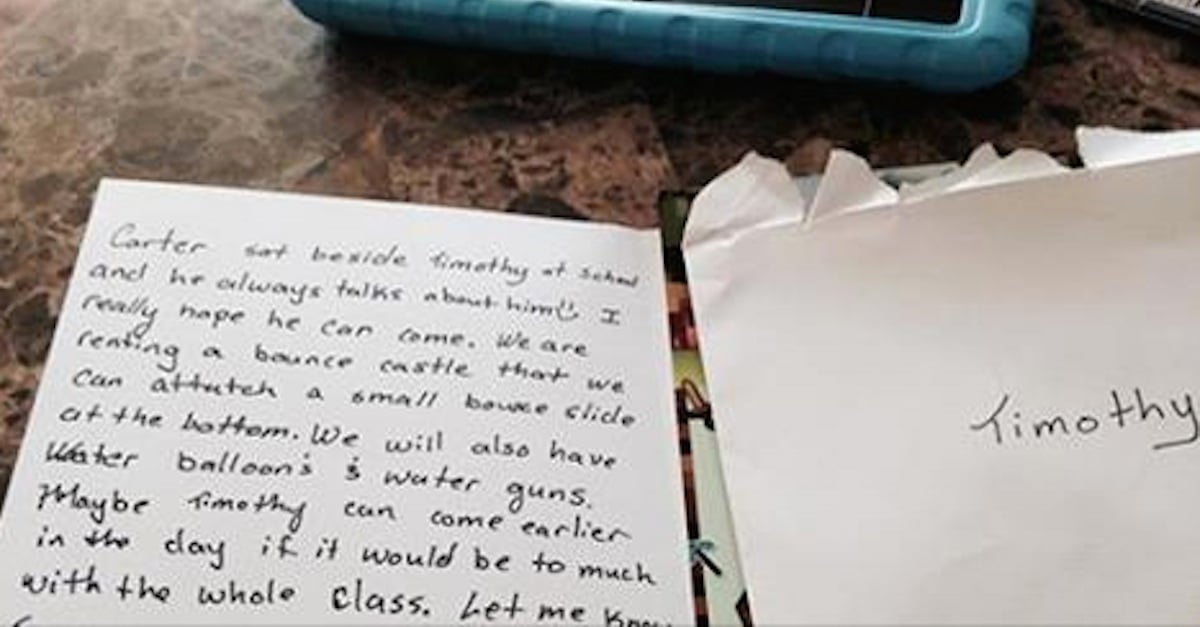 Carter sat beside Timothy at school
and he always talks about him I
really hope he can come. We are
renting a bounce castle that we
can attutch a small bounce slide
at the bottom. We will also have
Water balloon's & water guns.
Maybe Timothy can come earlier
in the day if it would be to much
with the whole class. Let me know
Timothy